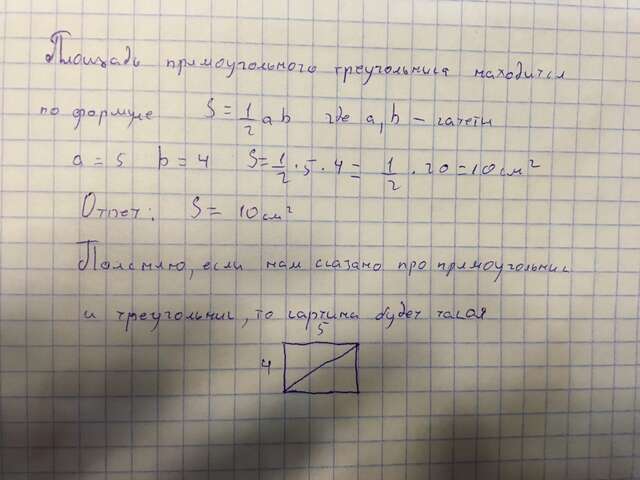 Площадь прямоугольного треугольника находится
по формуле S = 1/2 ab где a, b - катеты
a = 5 b = 4 S = 1/2 · 5 · 4 = 1/2 · 20 = 10 см²
Ответ: S = 10 см²
Поясняю, если нам сказано про прямоугольник
и треугольник, то картина будет такая
5
4